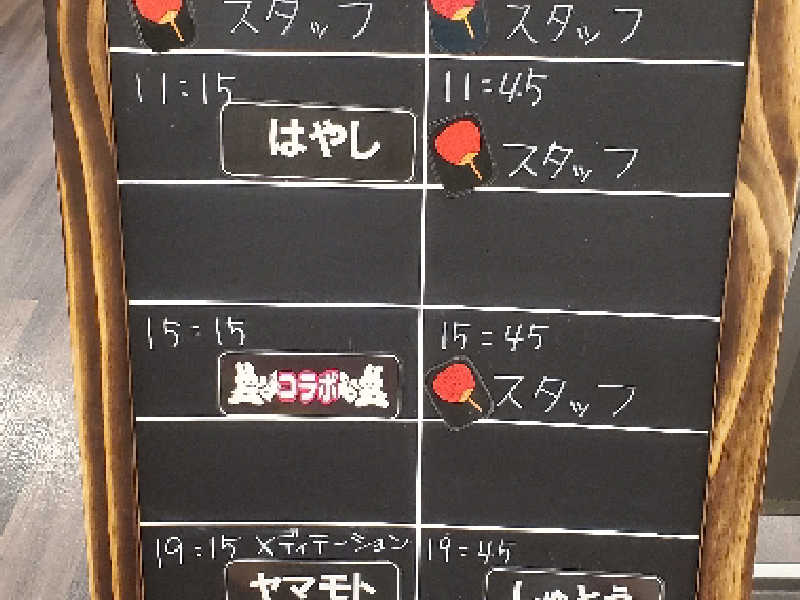 スタッフ
スタッフ
11:15
はやし
11:45
スタッフ
15:15
コラボ
15:45
スタッフ
19:15 メディテーション
ヤマモト
19:45